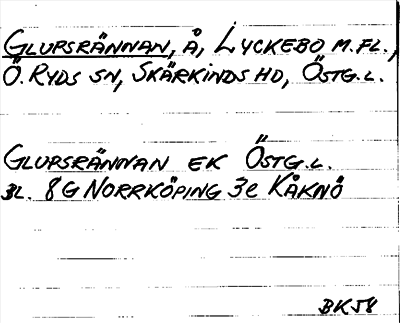 GLUPSRÄNNAN, Å, LYCKEBO M.FL.,
Ö. RYDS SN, SKÄRKINDS HD, ÖSTG.L.
GLUPSRÄNNAN EK ÖSTG.L.
BL. 8G NORRKÖPING 3e KÅKNÖ
BK58